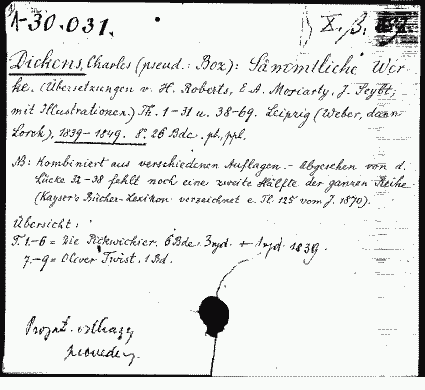 A-30.031.
X. β.
Dickens, Charles (pseud.: Boz): Sämmtliche Wer-
ke. (Übersetzungen v. H. Roberts, E.A. Moriarty, J. Seybt,
mit Illustrationen.) Th. 1-31 u. 38-69. Leipzig (Weber, dann
Lorck), 1839-1849. 8°. 26 Bde. pb., ppl.
NB: Kombiniert aus verschiedenen Auflagen. - Abgesehen von d.
Lücke 32-38 fehlt noch eine zweite Hälfte der ganzen Reihe
(Kayser's Bücher-Lexikon verzeichnet e. Tl. 125 vom J. 1870).
Übersicht:
T. 1.-6 = Die Pickwickier. 6 Bde. 3 + 1 1839.
7.-9 = Oliver Twist. 1 Bd.